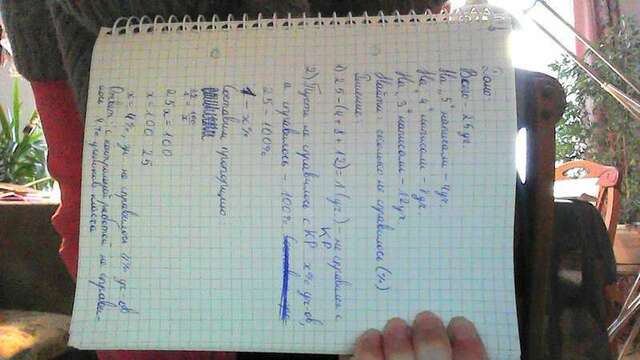 Дано:
Всего - 25 уч.
На „5" написали - 4 уч.
На „4" написали - 8 уч.
На „3" написали - 12 уч.
Найти: сколько не справилось (%)
Решение:
1) 25-(4+8+12)=1(уч) - не справился с
КР
2) Пусть не справился с КР x% уч-ов,
а справилось - 100%.
25 - 100%
1 - x%
Составим пропорцию:
25x = 100
x = 100 : 25
x = 4%, уч не справилось
Ответ: с контрольной работой не справи-
лось 4% учеников класса